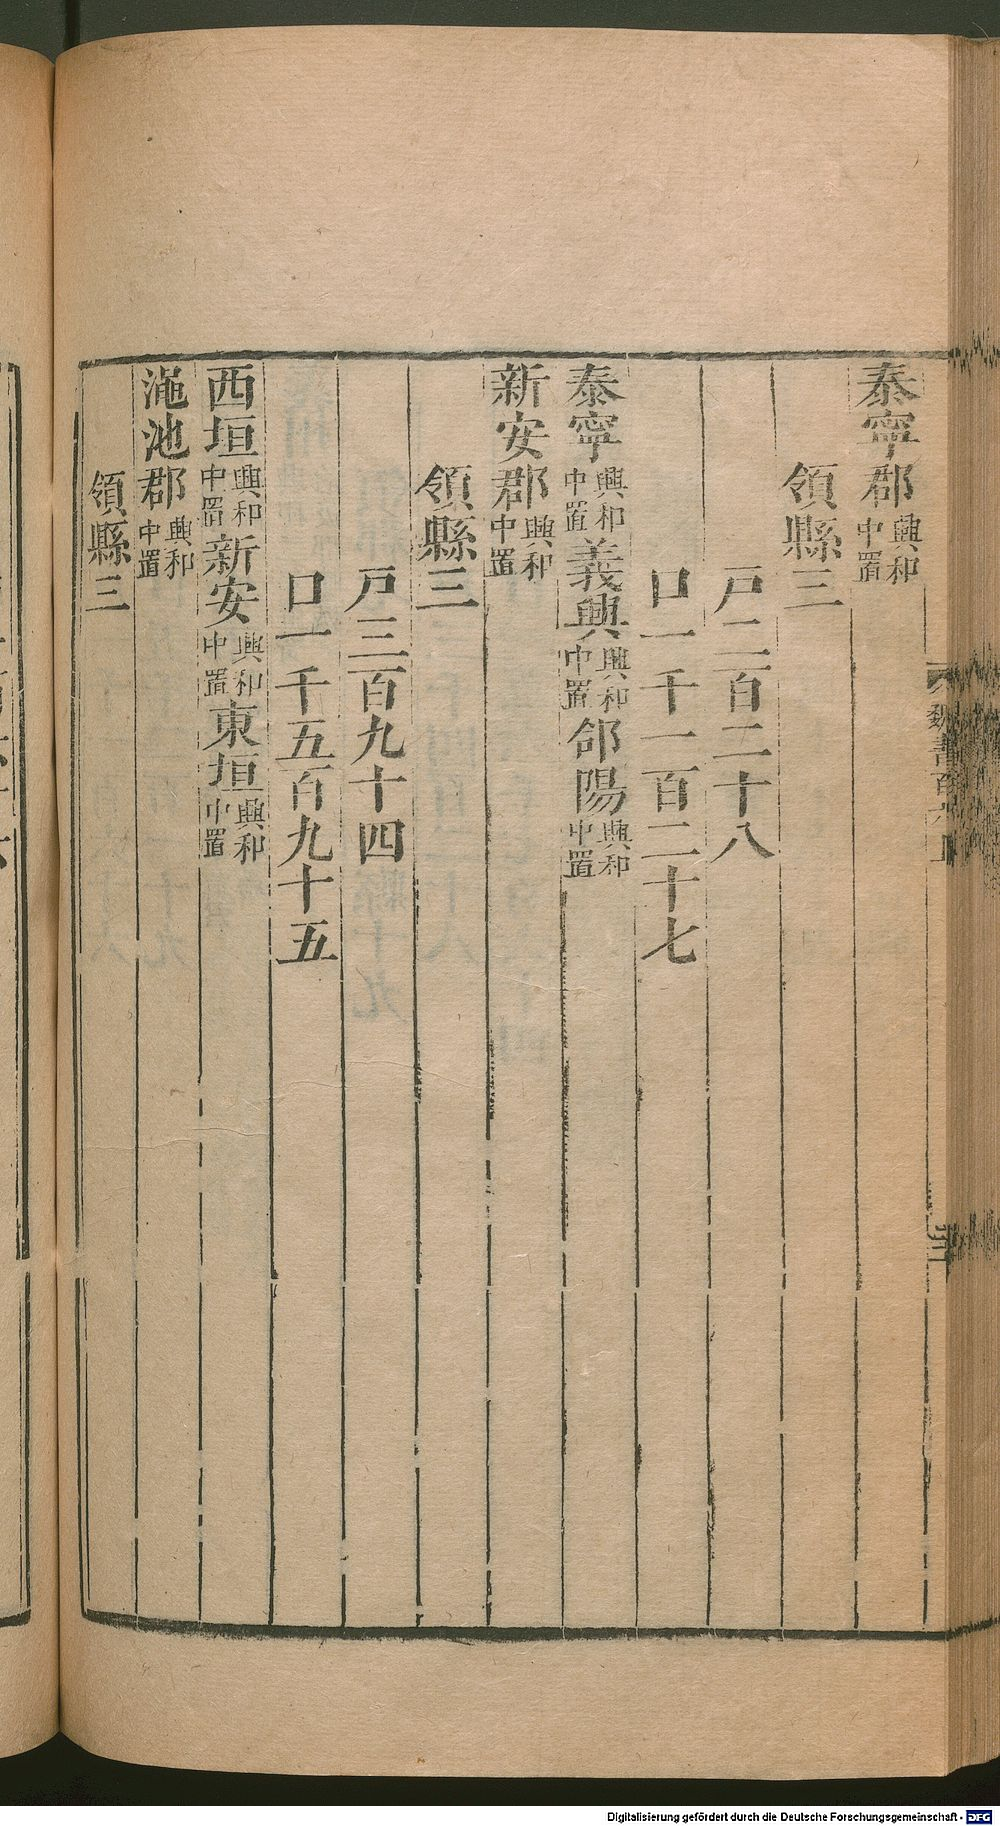 泰寧郡興和中置
領縣三
戸二百二十八
口一千一百二十七
泰寧興和中置義興興和中置郃陽興和中置
新安郡興和中置
領縣三
戸三百九十四
口一千五百九十五
西垣興和中置新安興和中置東垣興和中置
澠池郡興和中置
領縣三
Digitalisierung gefördert durch die Deutsche Forschungsgemeinschaft - DFG